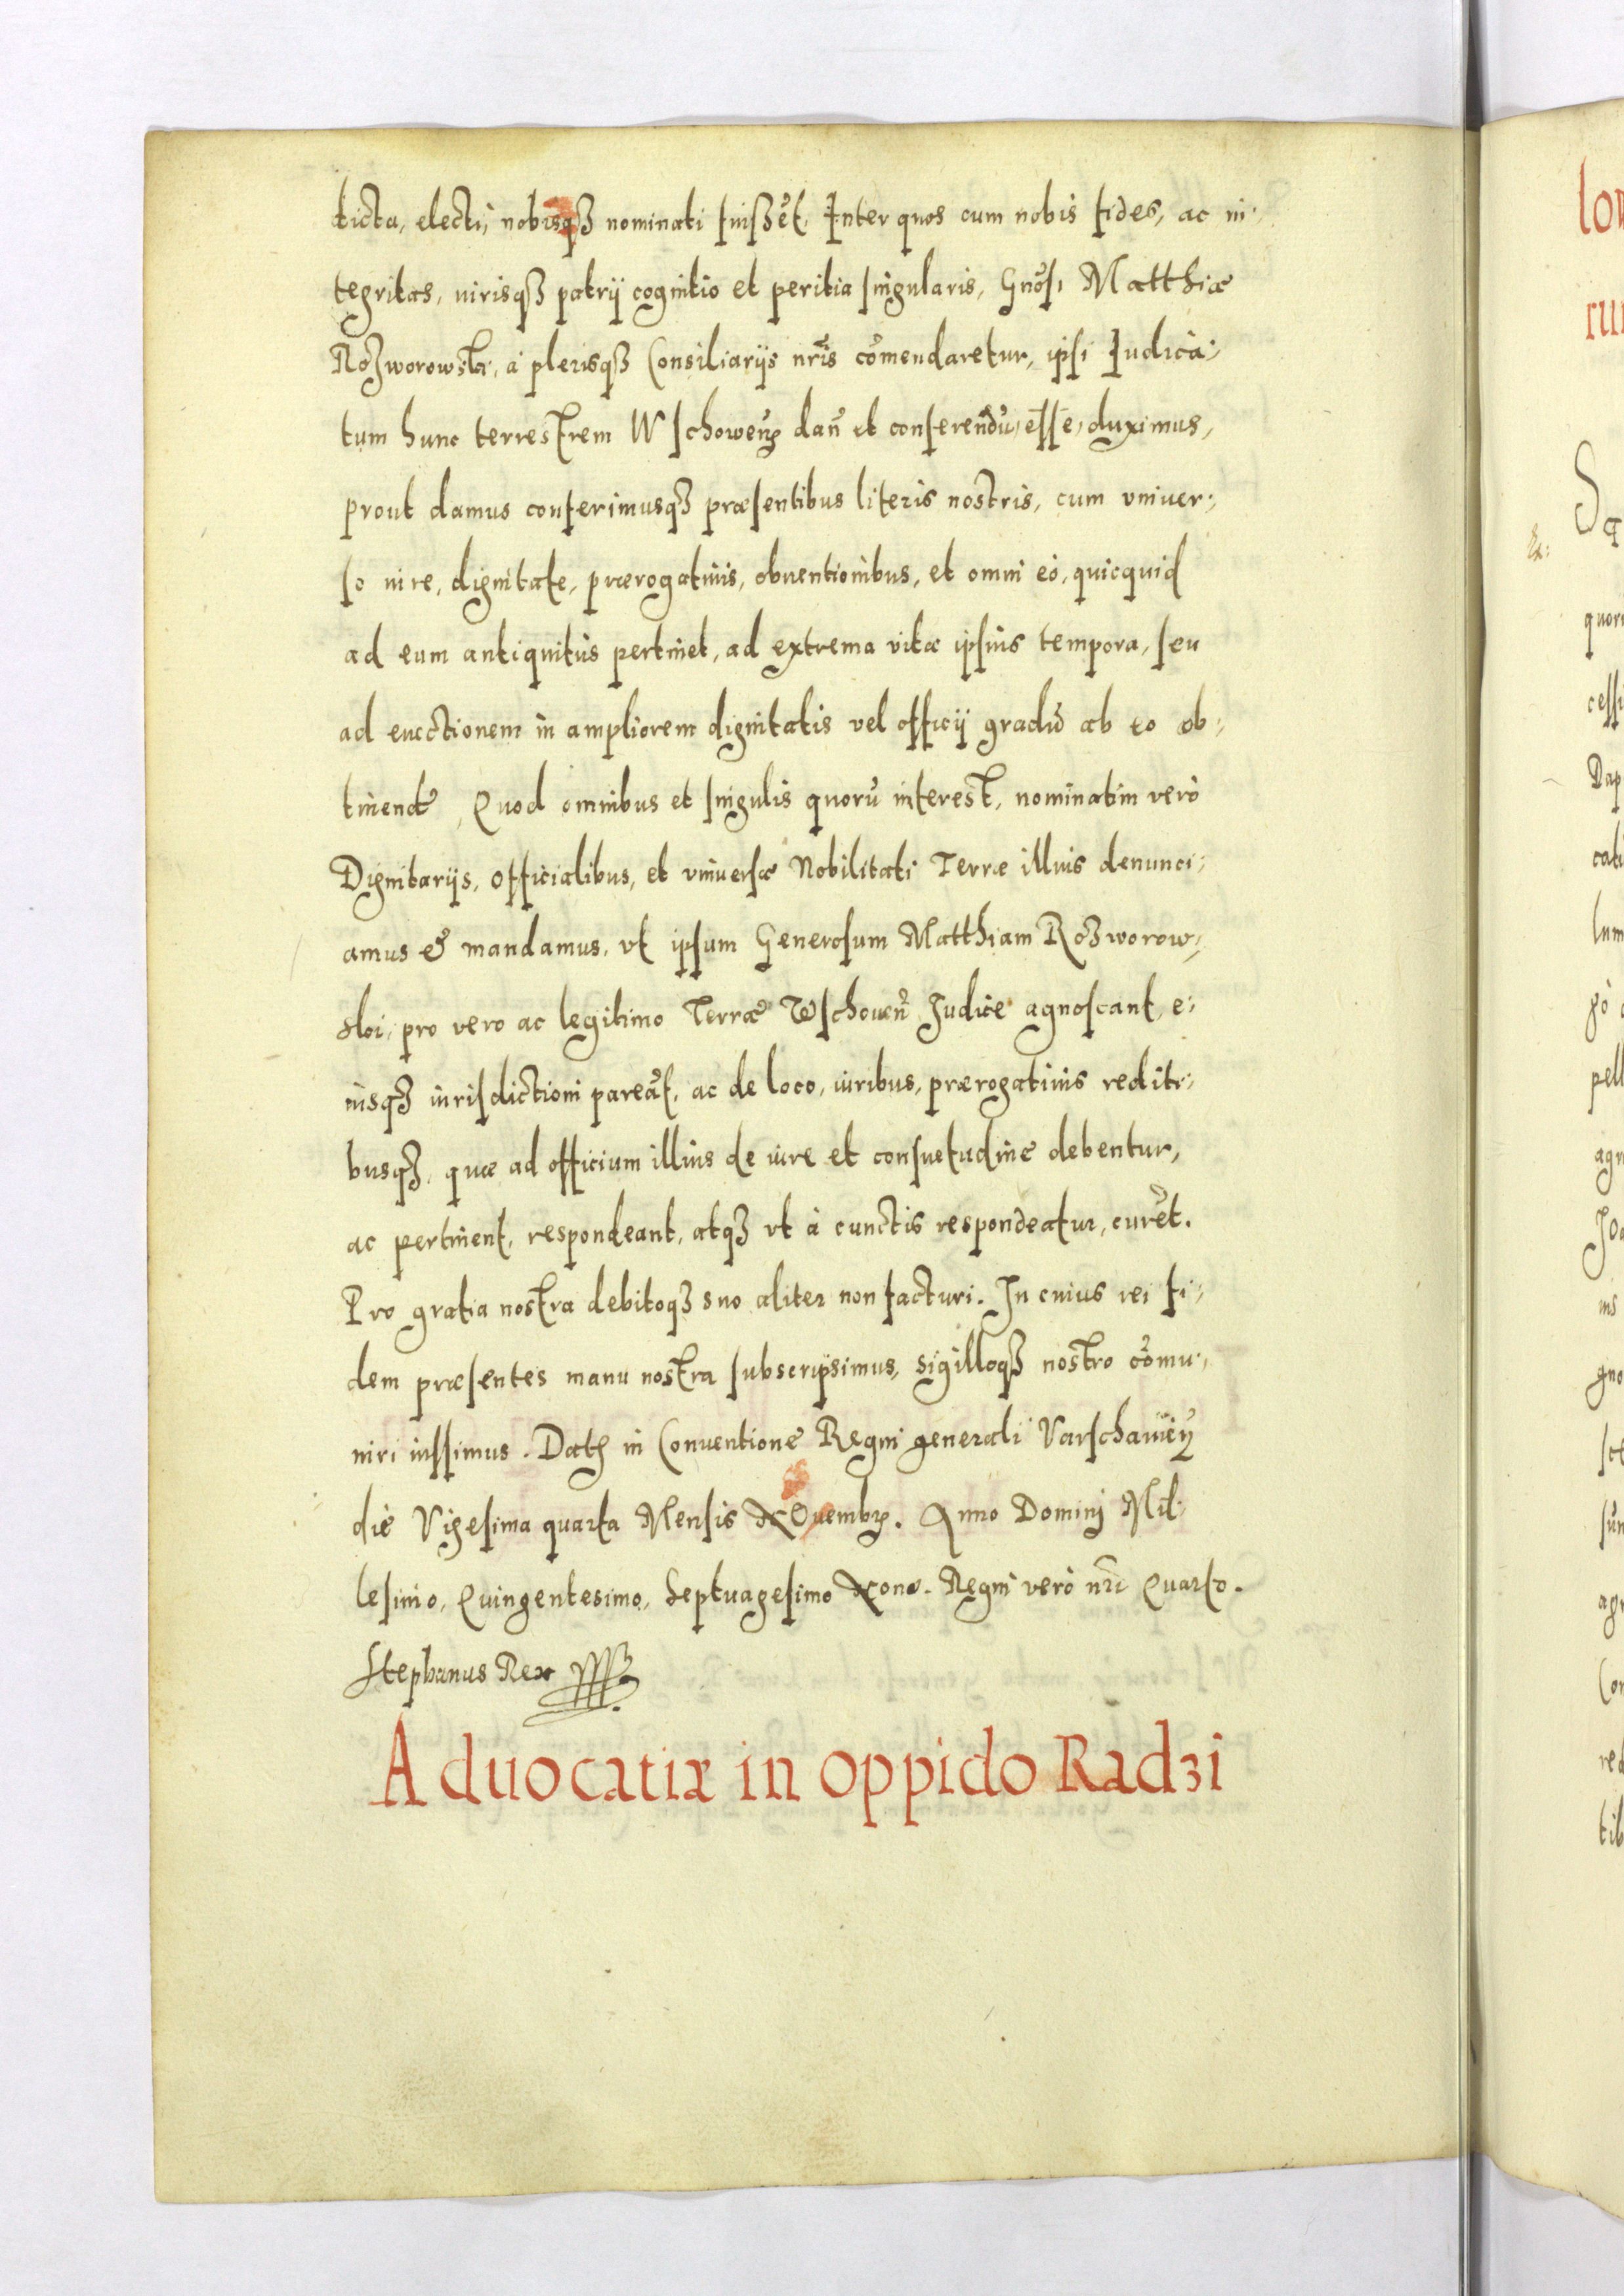 dicta, electi, nobisqꝫ nominati fuissēt. Inter quos cum nobis fides, ac in-
tegritas, iurisqꝫ patrij cognitio et peritia singularis, Gnōsi Matthiæ
Rozworowski, à plerisqꝫ Consiliarijs nr̄is cōmendaretur, ipsi Iudica-
tum hunc terrestrem Wschoweñ dañ et conferendū esse duximus,
prout damus conferimusqꝫ præsentibus literis nostris, cum vniuer-
so iure, dignitate, prærogatiuis, obuentionibus, et omni eo, quicquid
ad eum antiquitùs pertinet, ad extrema vitæ ipsius tempora, seu
ad euectionem in ampliorem dignitatis vel officij gradū ab eo ob-
tinend. Quod omnibus et singulis quorū interest, nominatim verò
Dignitarijs, Officialibus, et vniuersæ Nobilitati Terræ illius denunci-
amus & mandamus, vt ipsum Generosum Matthiam Rozworow-
ski, pro vero ac legitimo Terræ Wschoueñ Judice agnoscant, e-
iusqꝫ iurisdictioni pareāt, ac de loco, iuribus, prærogatiuis rediti-
busqꝫ, quæ ad officium illius de iure et consuetudine debentur,
ac pertinent, respondeant, atqꝫ vt à cunctis respondeatur, curēt.
Pro gratia nostra debitoqꝫ suo aliter non facturi. In cuius rei fi-
dem præsentes manu nostra subscripsimus, sigilloqꝫ nostro cōmu-
niri iussimus. Datꝫ in Conuentione Regni generali Varschauieñ
die Vigesima quarta Mensis Nouembꝫ. Anno Domini Mil-
lesimo, Quingentesimo, Septuagesimo Nono. Regni verò nr̄i Quarto.
Stephanus Rex
Aduocatiæ in oppido Radzi